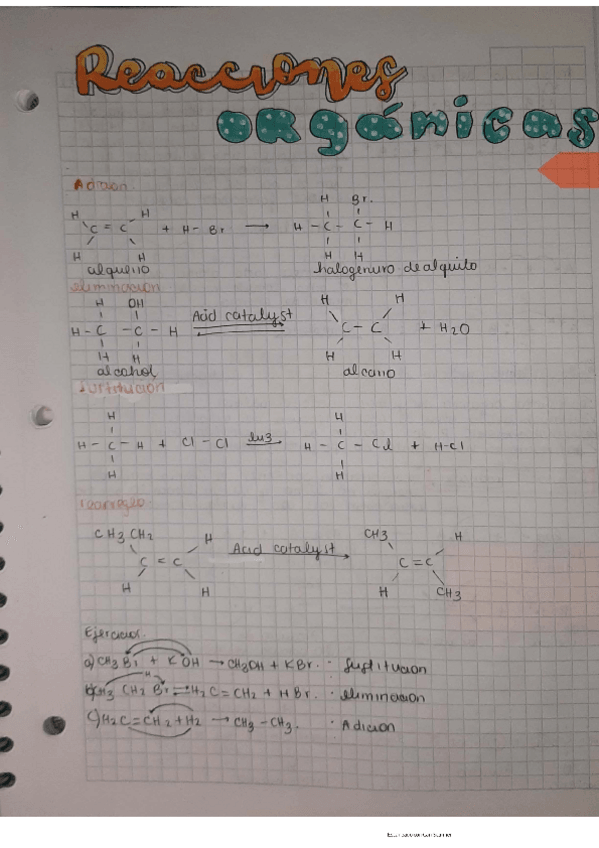 Reacciones
orgánicas
Adicion.
H H H Br.
C = C + H - Br → H - C - C - H
H H H H
alqueno halogenuro de alquilo
eliminacion
H OH H H
H - C - C - H Acid catalyst C - C + H2O
H H H H
alcohol alcano
Sustitucion
H H
H - C - H + Cl - Cl luz H - C - Cl + H-Cl
H H
CH3 CH2 H CH3 H
C = C Acid catalyst C = C
H H H CH3
Ejercicios.
a) CH3 Br + K OH → CH3OH + KBr. · Sustitucion
b) CH3 CH2 Br H2C = CH2 + HBr. · eliminacion
c) H2C = CH2 + H2 → CH3 - CH3. · Adicion